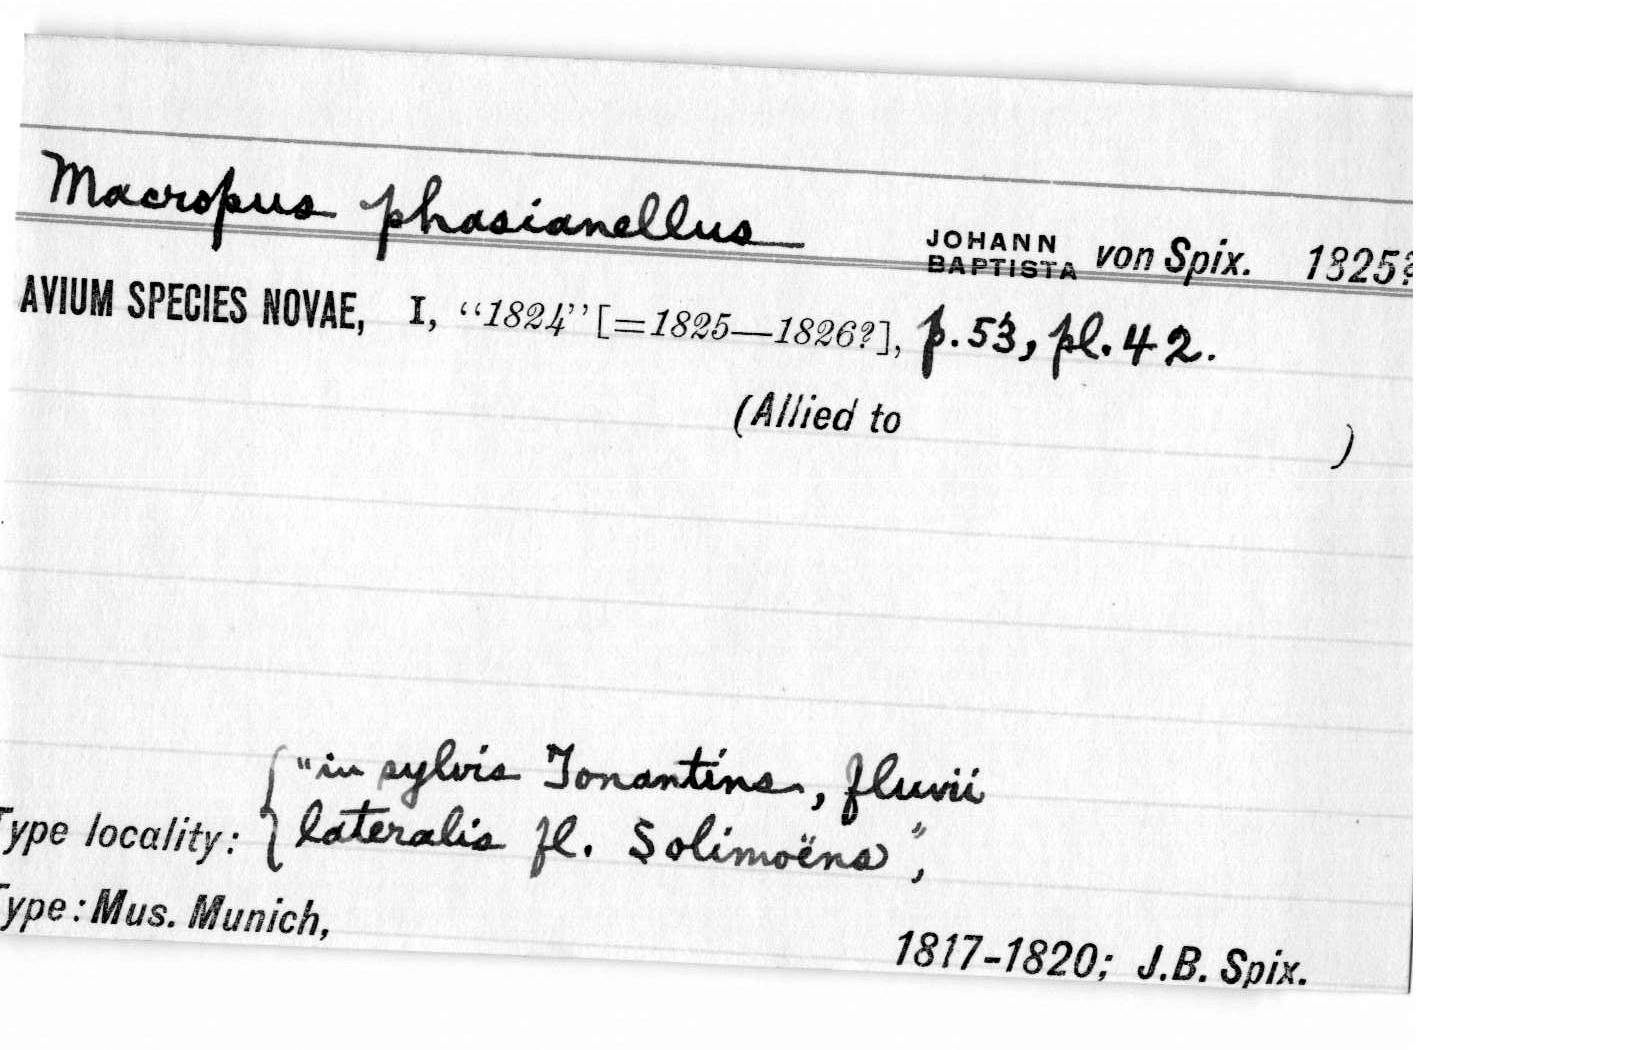 Macropus phasianellus JOHANN BAPTISTA von Spix. 1825?
AVIUM SPECIES NOVAE, I, “1824” [=1825—1826?], p.53, pl.42.
(Allied to )
"in sylvis Tonantins, fluvii
Type locality: { lateralis fl. Solimoëns",
Type: Mus. Munich,
1817-1820; J.B. Spix.